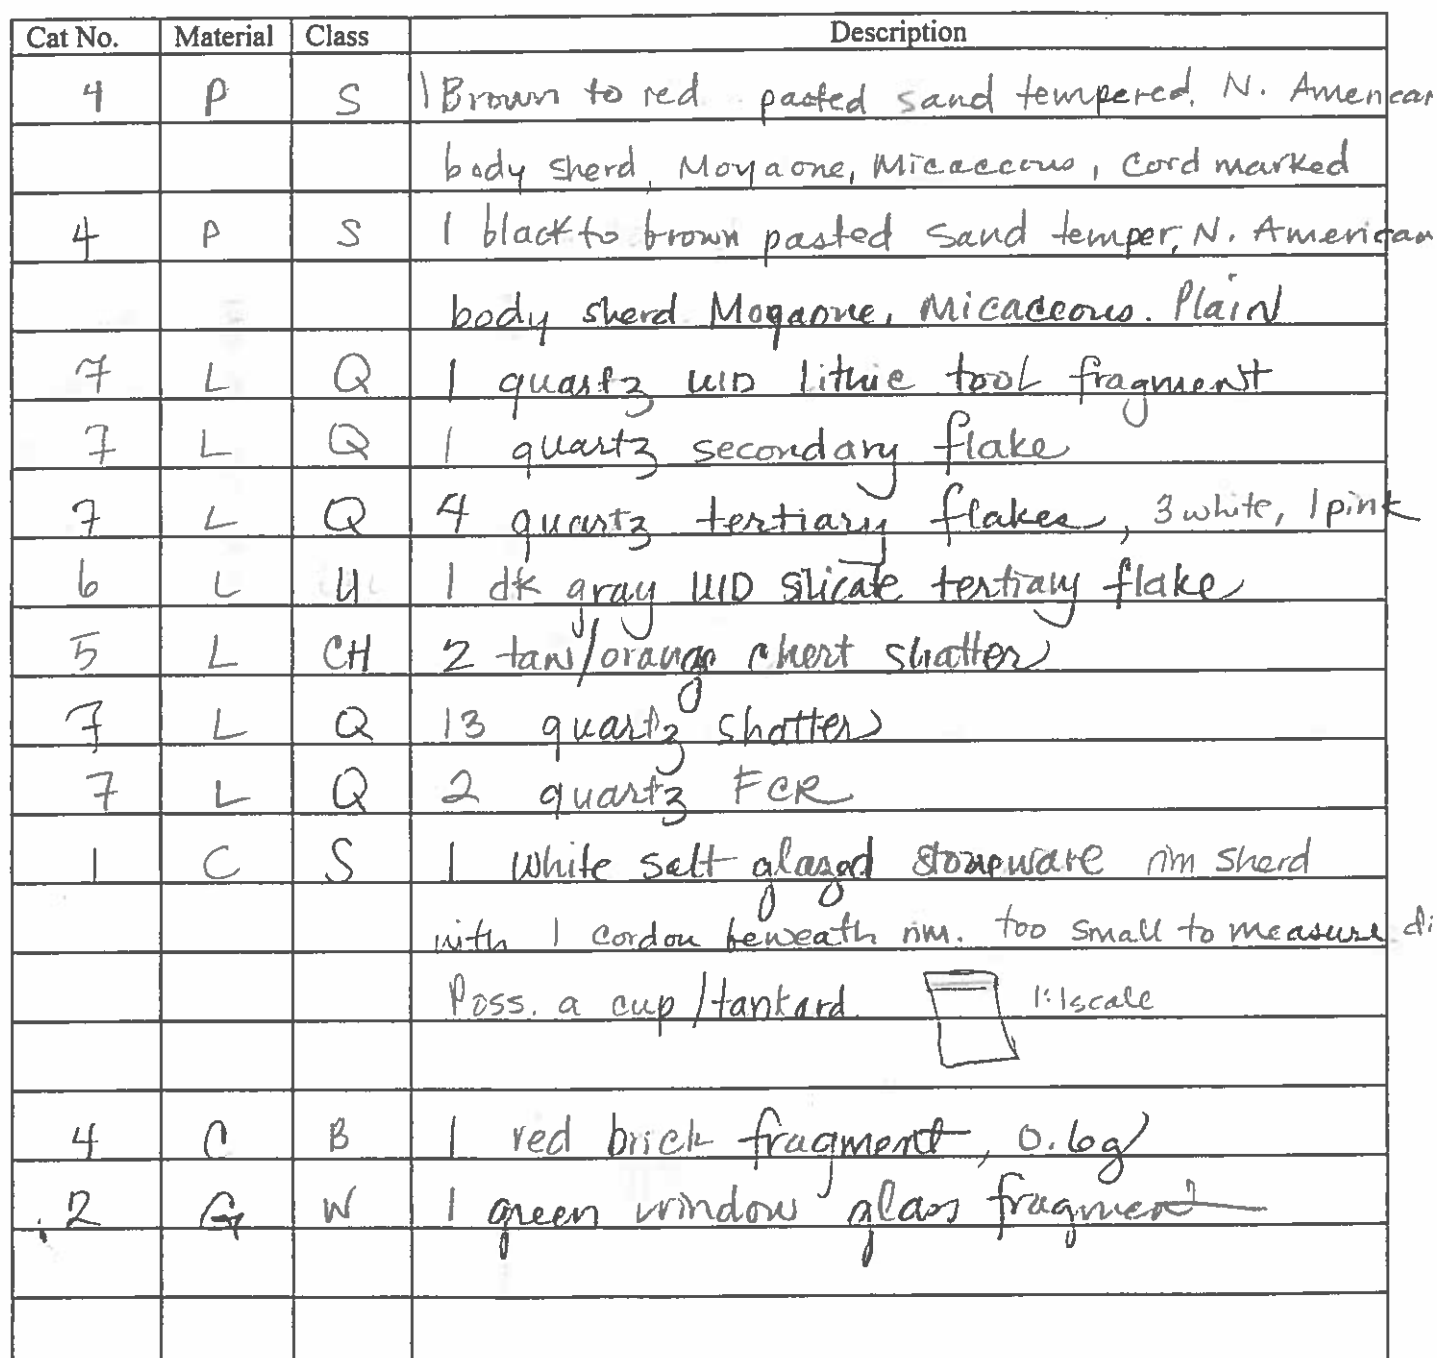 Cat No. Material Class Description
4 P S 1 Brown to red pasted sand tempered, N. American
body sherd, Moyaone, Micaceous, Cord marked
4 P S 1 black to brown pasted sand temper, N. American
body sherd Moyaone, Micaceous. Plain
7 L Q 1 quartz UID lithic tool fragment
7 L Q 1 quartz secondary flake
7 L Q 4 quartz tertiary flakes, 3 white, 1 pink
6 L U 1 dk gray UID silicate tertiary flake
5 L CH 2 tan/orange chert shatter
7 L Q 13 quartz shatter
7 L Q 2 quartz FCR
1 C S 1 White salt glazed stoneware rim sherd
with 1 cordon beneath rim. too small to measure di
Poss. a cup/tankard. 1:1 scale
4 C B 1 red brick fragment, 0.6g
2 G W 1 green window glass fragment